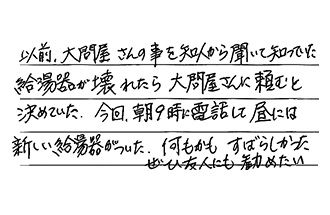 以前、大問屋さんの事を知人から聞いて知っていた
給湯器が壊れたら大問屋さんに頼むと
決めていた。今回、朝9時に電話して昼には
新しい給湯器がついた。何もかもすばらしかった
ぜひ友人にも勧めたい